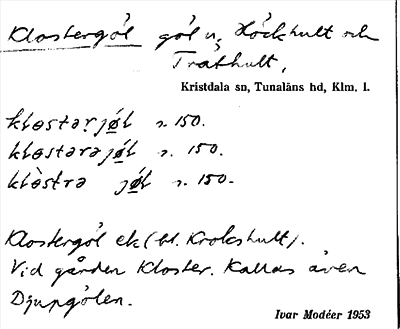 Klostergöl göl n. Höckhult och
Tråthult,
Kristdala sn, Tunaläns hd, Klm. l.
klɵstərjø̱l n. 150.
klɵstərəjø̱l n. 150.
klɵ̀strə jø̱l n. 150.
Klostergöl ek (bl. Krokshult).
Vid gården Kloster. Kallas även
Djupgölen.
Ivar Modéer 1953